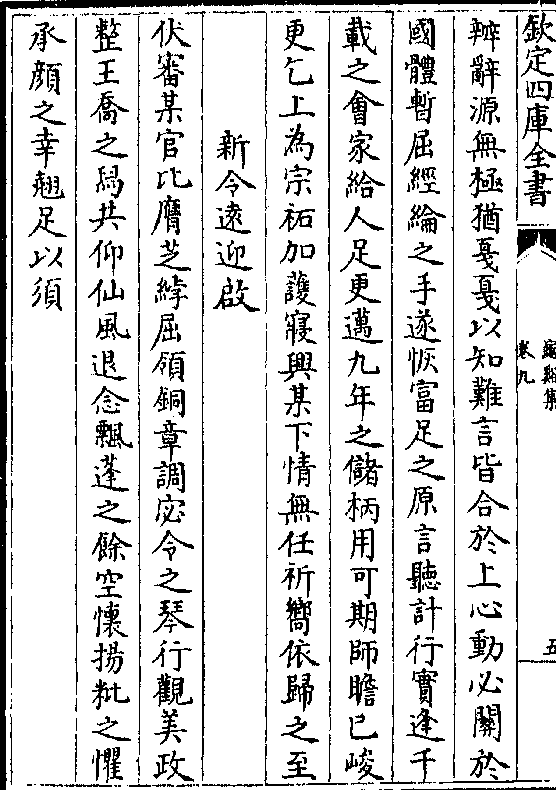 欽定四庫全書
卷九
五
辨辭源無極猶戞戞以知難言皆合於上心動必關於
國體暫屈經綸之手遂恢富足之原言聽計行實逢千
載之會家給人足更邁九年之儲柄用可期師瞻已峻
更乞上為宗祏加護寢興某下情無任祈嚮依歸之至
新令逺迎啟
伏審某官比膺芝綍屈領銅章調宓令之琴行觀美政
整王喬之舄共仰仙風退念飄蓬之餘空懷揚粃之懼
承顔之幸翹足以須